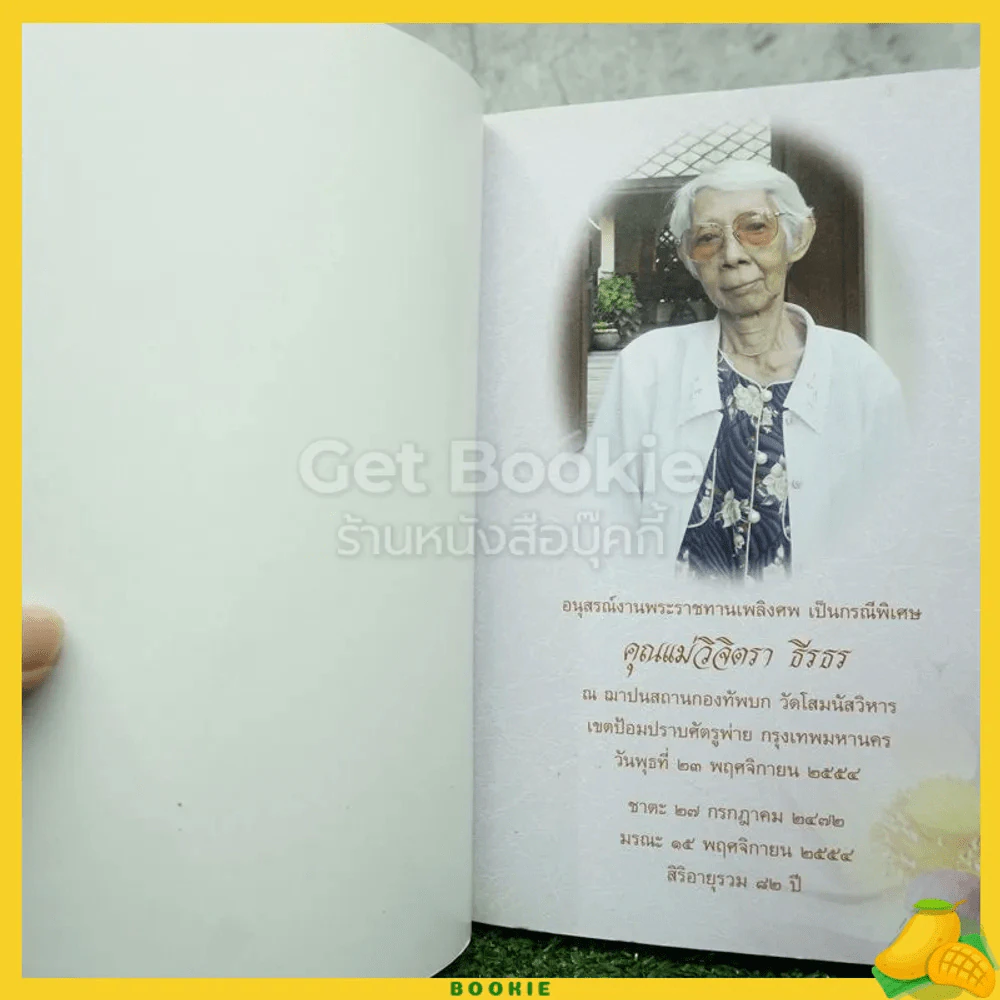 Get Bookie
ร้านหนังสือบุ๊คกี้
อนุสรณ์งานพระราชทานเพลิงศพ เป็นกรณีพิเศษ
คุณแม่วิจิตรา ธีรธร
ณ ฌาปนสถานกองทัพบก วัดโสมนัสวิหาร
เขตป้อมปราบศัตรูพ่าย กรุงเทพมหานคร
วันพุธที่ ๒๓ พฤศจิกายน ๒๕๕๔
ชาตะ ๒๗ กรกฎาคม ๒๔๗๒
มรณะ ๑๕ พฤศจิกายน ๒๕๕๔
สิริอายุรวม ๘๒ ปี
BOOKIE